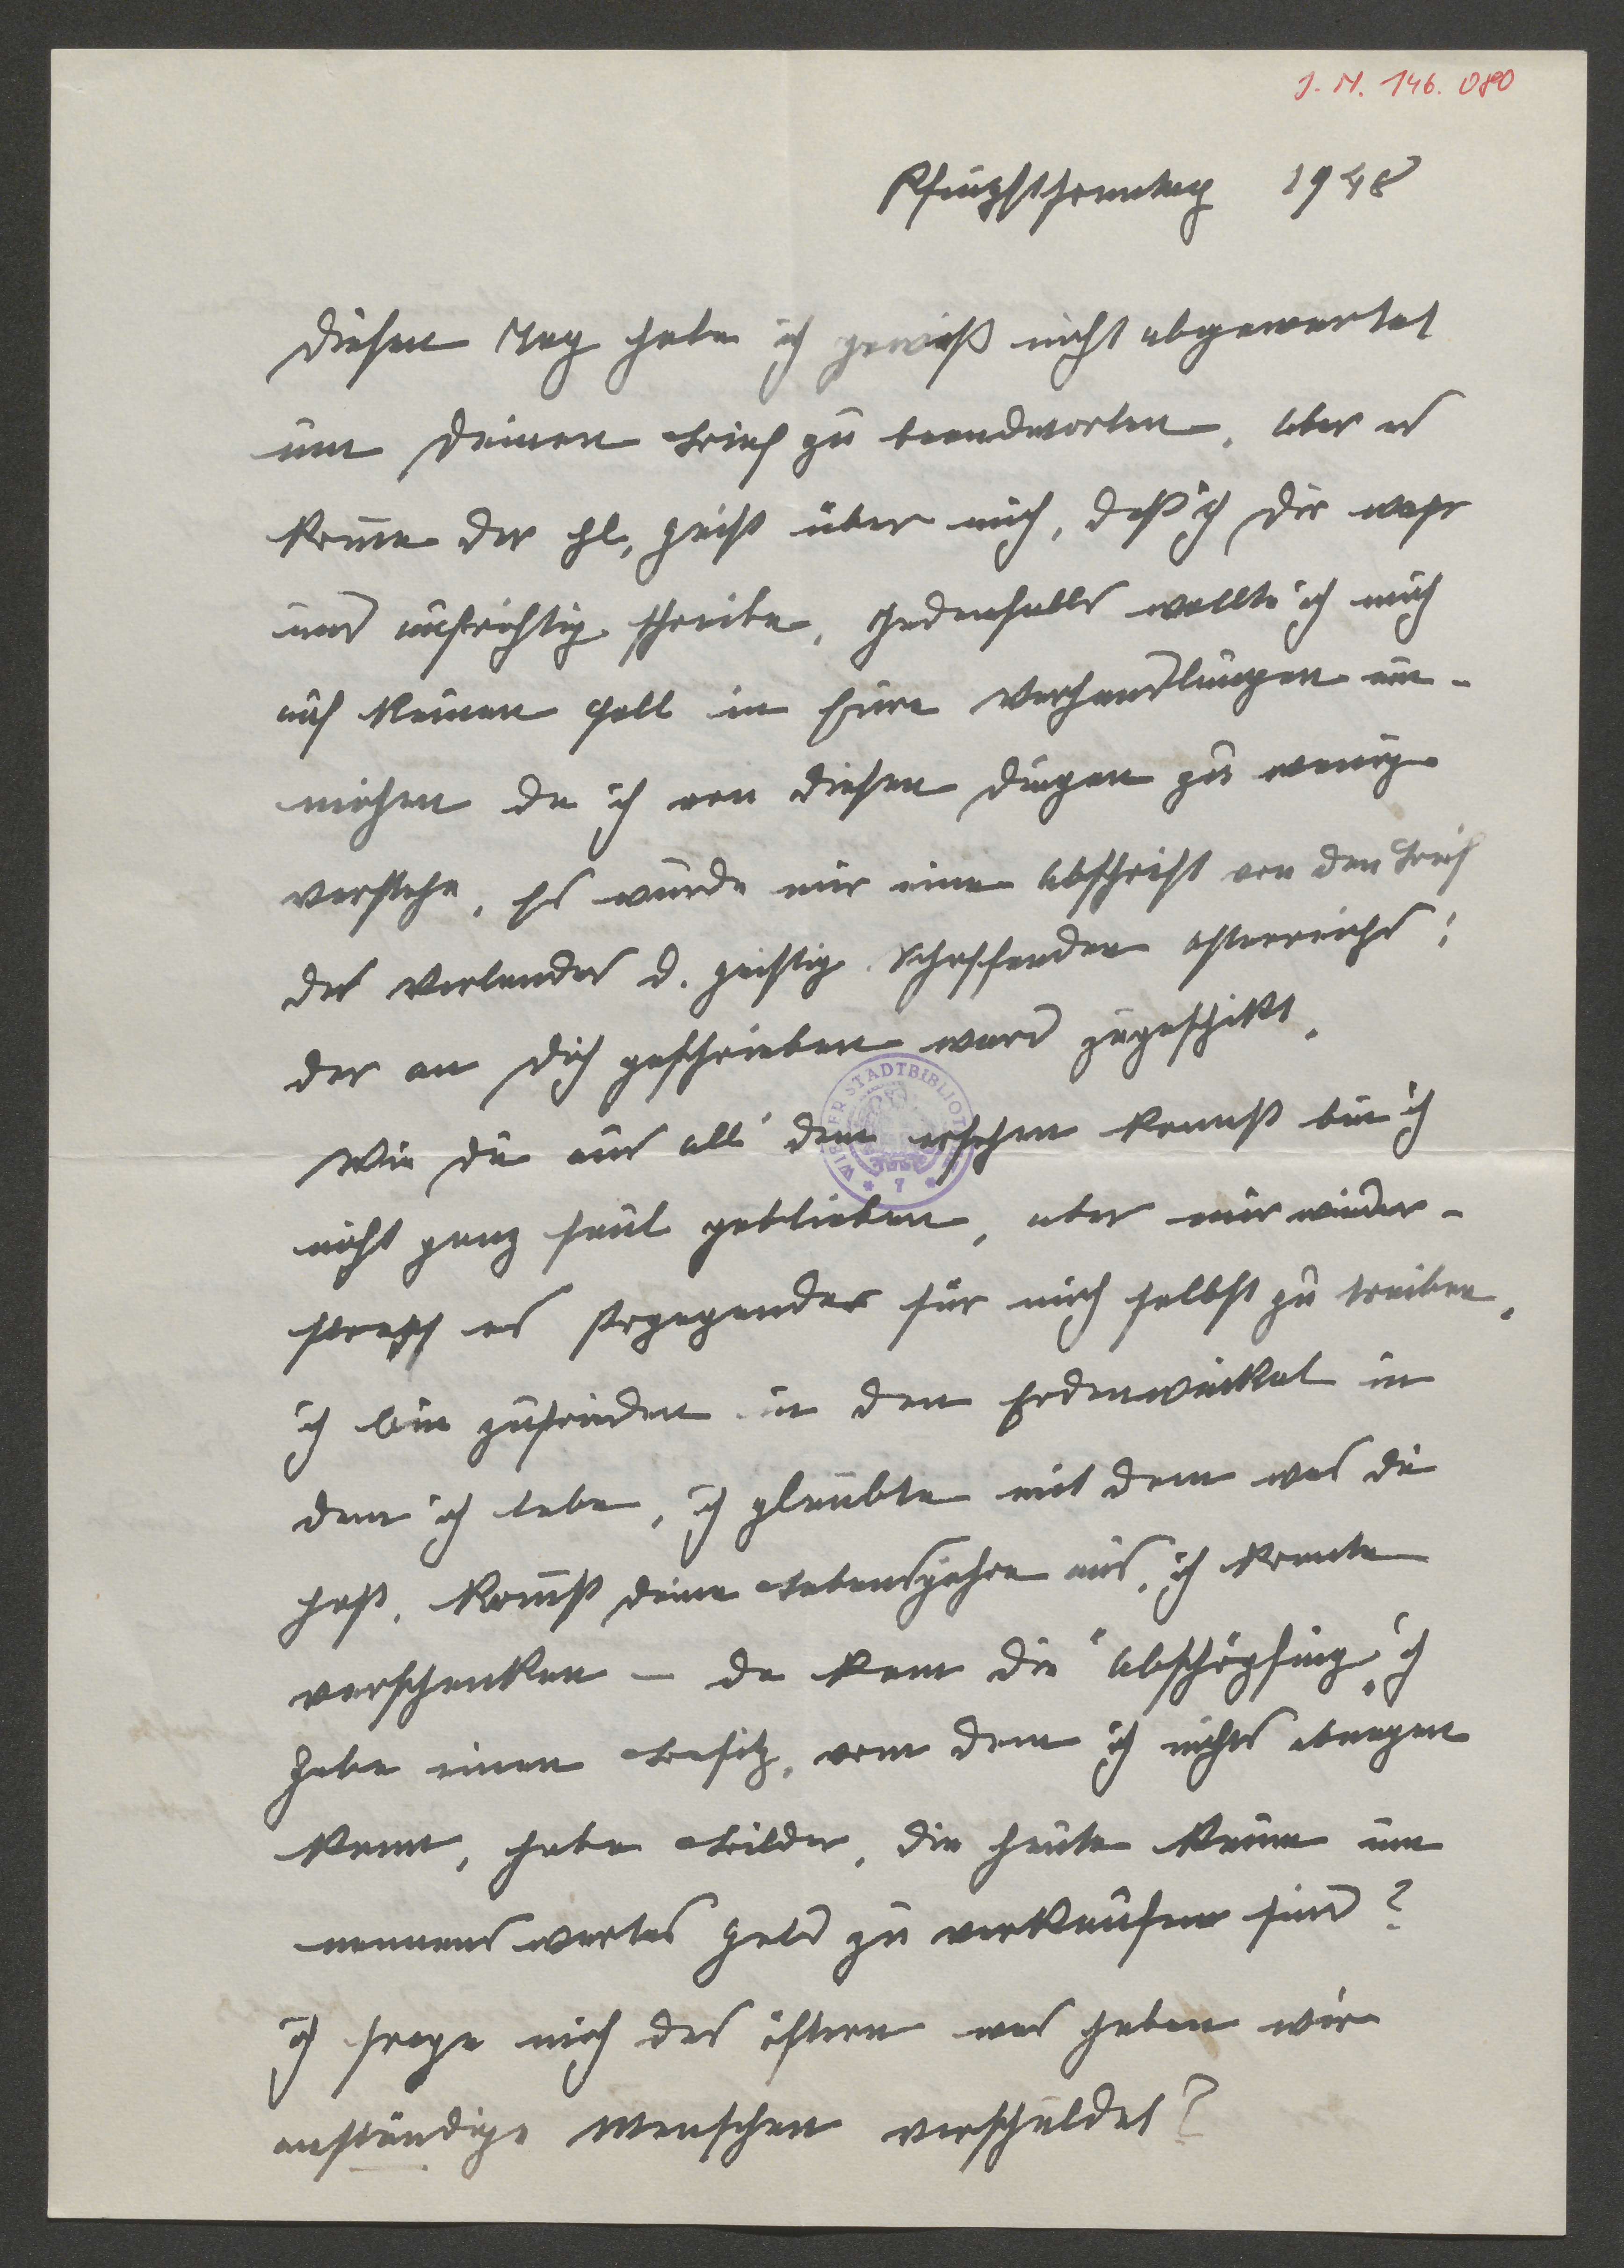 J. N. 146. 080
Pfingstsonntag 1948
Diesen Tag habe ich gewiß nicht abgewartet
um Deinen Brief zu beandworten, aber es
komme der hl. Geist über mich, daß ich Dir wahr
und aufrichtig schreibe. Jedenfalls wollte ich mich
auf keinen Fall in Eure Verhandlungen ein-
michen da ich von diesen Dingen zu wenig
verstehe. Es wurde mir eine Abschrift von den Brief
des Verbandes d. geistig Schaffenden Österreichs;
der an Dich geschrieben ward zugeschikt.
Wie Du aus all' dem ersehen kannst bin ich
nicht ganz faul geblieben, aber mir wieder-
strebt es Propaganda für mich selbst zu treiben.
ich bin zufrieden in den Erdenwinkel in
dem ich lebe, ich glaubte mit dem was Du
hast, kommst Deine Lebensjahre aus, ich konnte
verschenken – da kam die "Abschöpfung" ich
habe einen Besitz, vom dem ich nichts
kann, habe Bilder, die heute kaum um
nennenswertes Geld zu verkaufen sind?
ich frage mich des öftern was haben wir
anständige Menschen verschuldet?
WIENER STADTBIBLIOTHEK